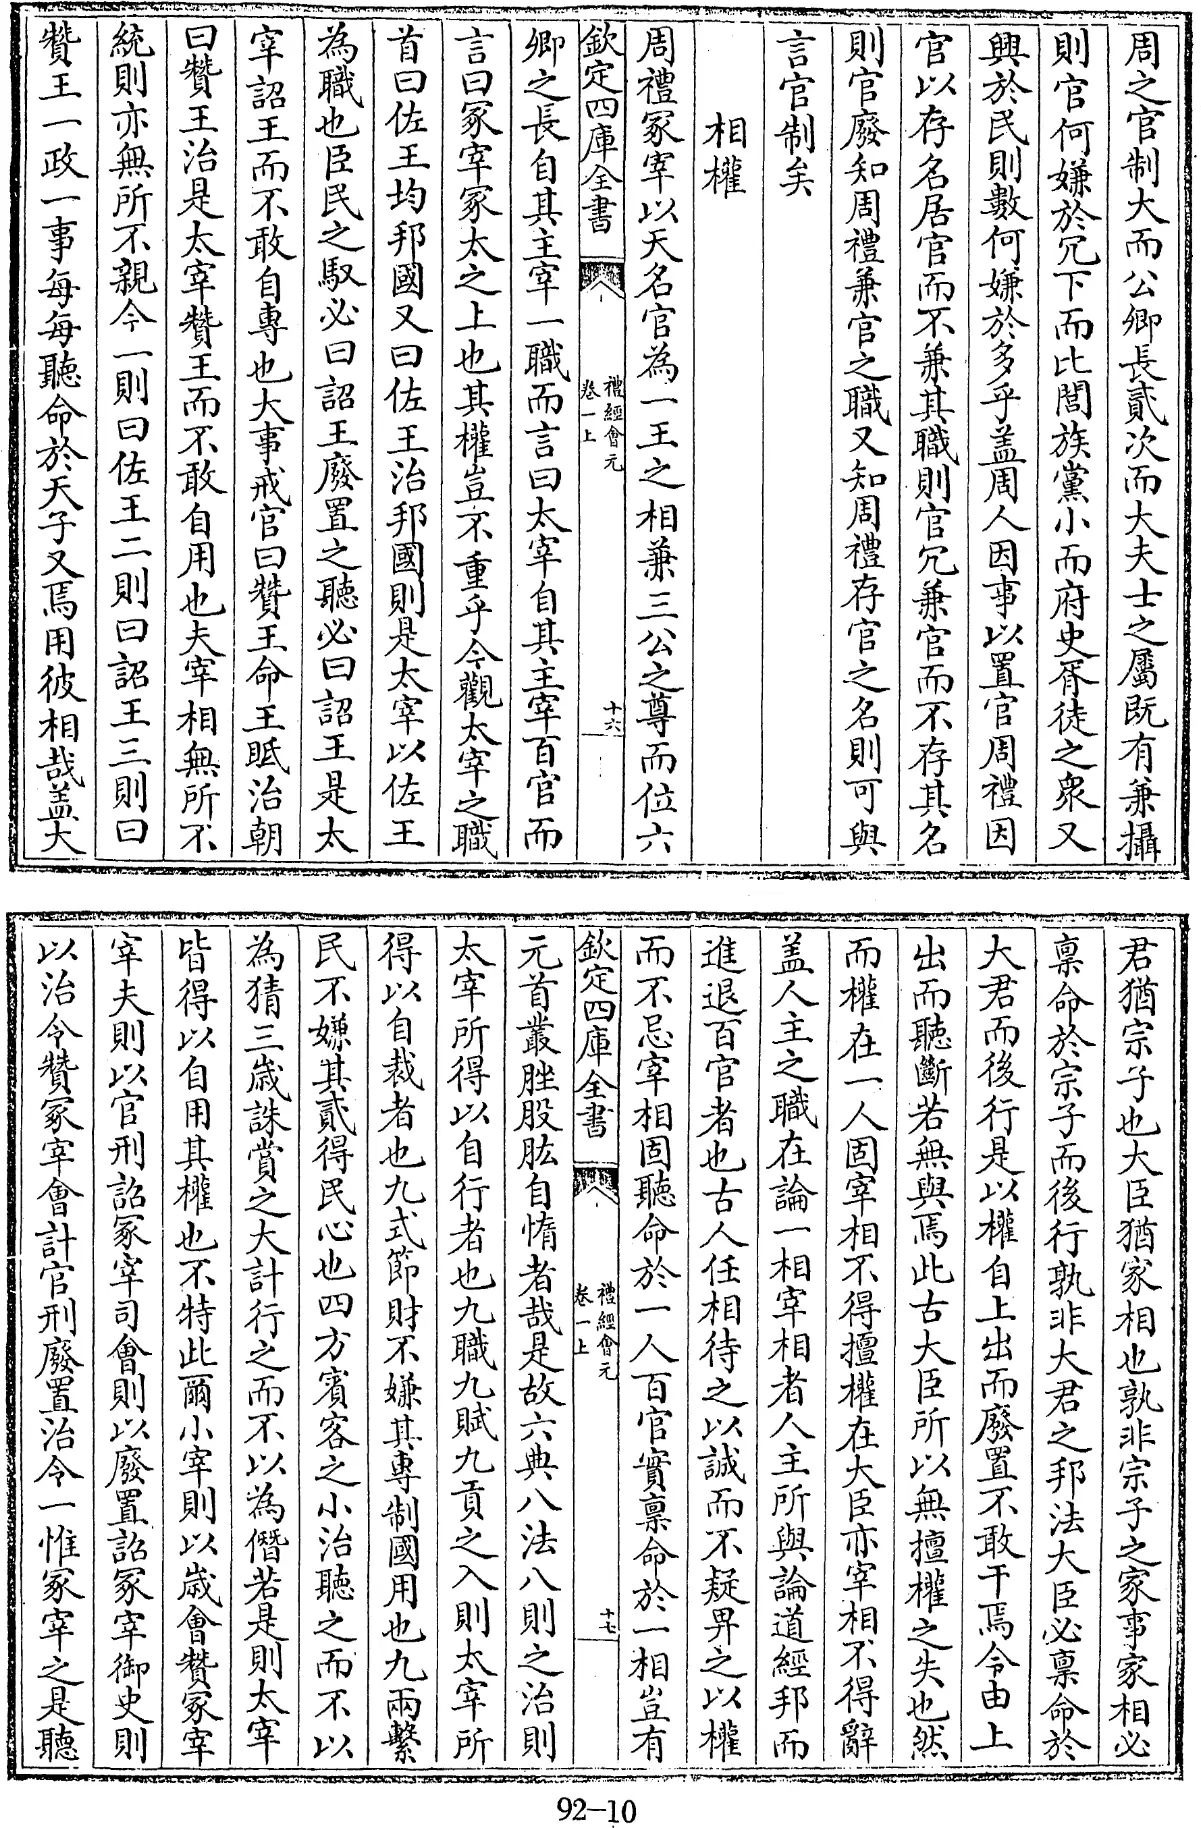 周之官制大而公卿長貳次而大夫士之屬既有兼攝
則官何嫌於冗下而比閭族黨小而府史胥徒之衆又
興於民則數何嫌於多乎盖周人因事以置官周禮因
官以存名居官而不兼其職則官冗兼官而不存其名
則官廢知周禮兼官之職又知周禮存官之名則可與
言官制矣
相權
周禮冡宰以天名官為一王之相兼三公之尊而位六
欽定四庫全書
禮經會元
卷一上
十六
卿之長自其主宰一職而言曰太宰自其主宰百官而
言曰冡宰冡太之上也其權豈不重乎今觀太宰之職
首曰佐王均邦國又曰佐王治邦國則是太宰以佐王
為職也臣民之馭必曰詔王廢置之聽必曰詔王是太
宰詔王而不敢自專也大事戒官曰贊王命王眡治朝
曰贊王治是太宰贊王而不敢自用也夫宰相無所不
統則亦無所不親今一則曰佐王二則曰詔王三則曰
贊王一政一事每每聽命於天子又焉用彼相哉盖大
君猶宗子也大臣猶家相也孰非宗子之家事家相必
稟命於宗子而後行孰非大君之邦法大臣必稟命於
大君而後行是以權自上出而廢置不敢干焉令由上
出而聽斷若無與焉此古大臣所以無擅權之失也然
而權在一人固宰相不得擅權在大臣亦宰相不得辭
盖人主之職在論一相宰相者人主所與論道經邦而
進退百官者也古人任相待之以誠而不疑畀之以權
而不忌宰相固聽命於一人百官實稟命於一相豈有
欽定四庫全書
禮經會元
卷一上
十七
元首叢脞股肱自惰者哉是故六典八法八則之治則
太宰所得以自行者也九職九賦九貢之入則太宰所
得以自裁者也九式節財不嫌其專制國用也九兩繫
民不嫌其貳得民心也四方賓客之小治聽之而不以
為猜三歲誅賞之大計行之而不以為僭若是則太宰
皆得以自用其權也不特此爾小宰則以歲會贊冡宰
宰夫則以官刑詔冡宰司會則以廢置詔冡宰御史則
以治令贊冡宰會計官刑廢置治令一惟冡宰之是聽
92-10